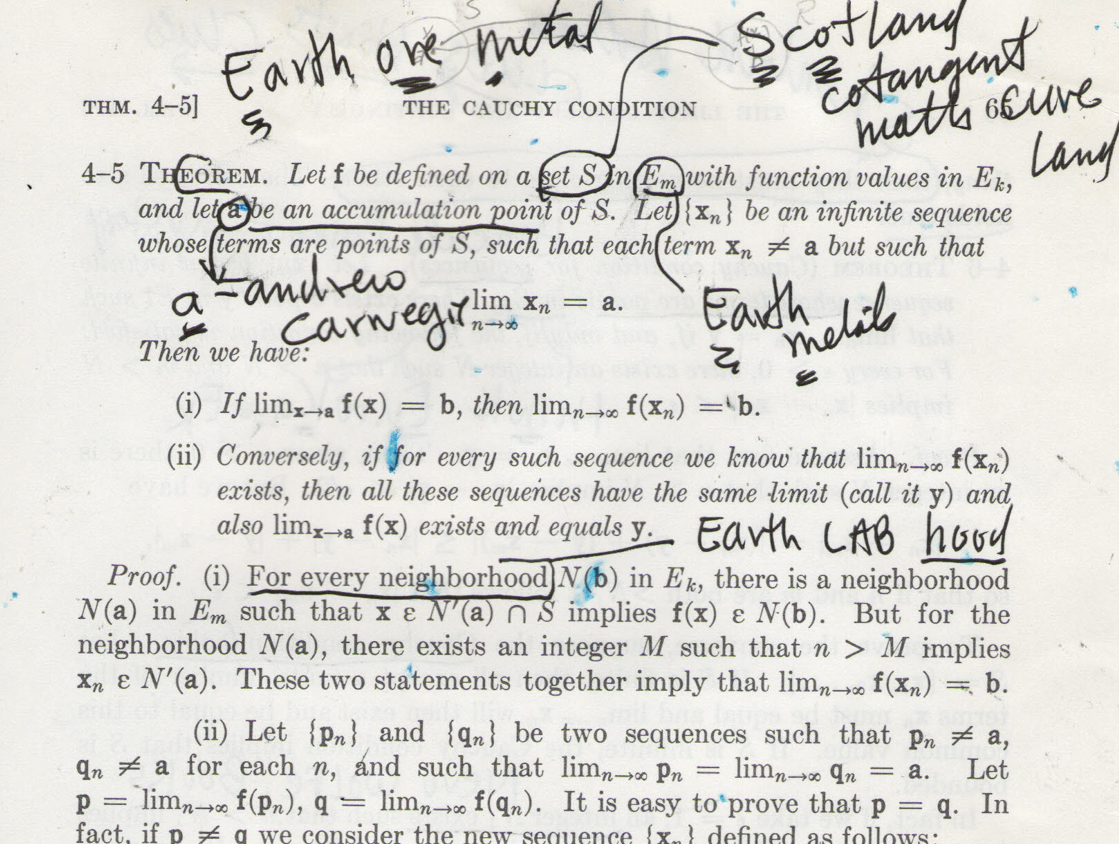 Earth ore metal
Scotland
cotangent
math cure
land
THM. 4–5] THE CAUCHY CONDITION 65
4–5 THEOREM. Let f be defined on a set S in Eₘ with function values in Eₖ,
and let a be an accumulation point of S. Let {xₙ} be an infinite sequence
whose terms are points of S, such that each term xₙ ≠ a but such that
a - andrew
carnegie
lim xₙ = a.
n→∞
Earth
metals
Then we have:
(i) If limₓ→ₐ f(x) = b, then limₙ→∞ f(xₙ) = b.
(ii) Conversely, if for every such sequence we know that limₙ→∞ f(xₙ)
exists, then all these sequences have the same limit (call it y) and
also limₓ→ₐ f(x) exists and equals y.
Earth LAB hood
Proof. (i) For every neighborhood N(b) in Eₖ, there is a neighborhood
N(a) in Eₘ such that x ε N′(a) ∩ S implies f(x) ε N(b). But for the
neighborhood N(a), there exists an integer M such that n > M implies
xₙ ε N′(a). These two statements together imply that limₙ→∞ f(xₙ) = b.
(ii) Let {pₙ} and {qₙ} be two sequences such that pₙ ≠ a,
qₙ ≠ a for each n, and such that limₙ→∞ pₙ = limₙ→∞ qₙ = a. Let
p = limₙ→∞ f(pₙ), q = limₙ→∞ f(qₙ). It is easy to prove that p = q. In
fact, if p ≠ q we consider the new sequence {xₙ} defined as follows: